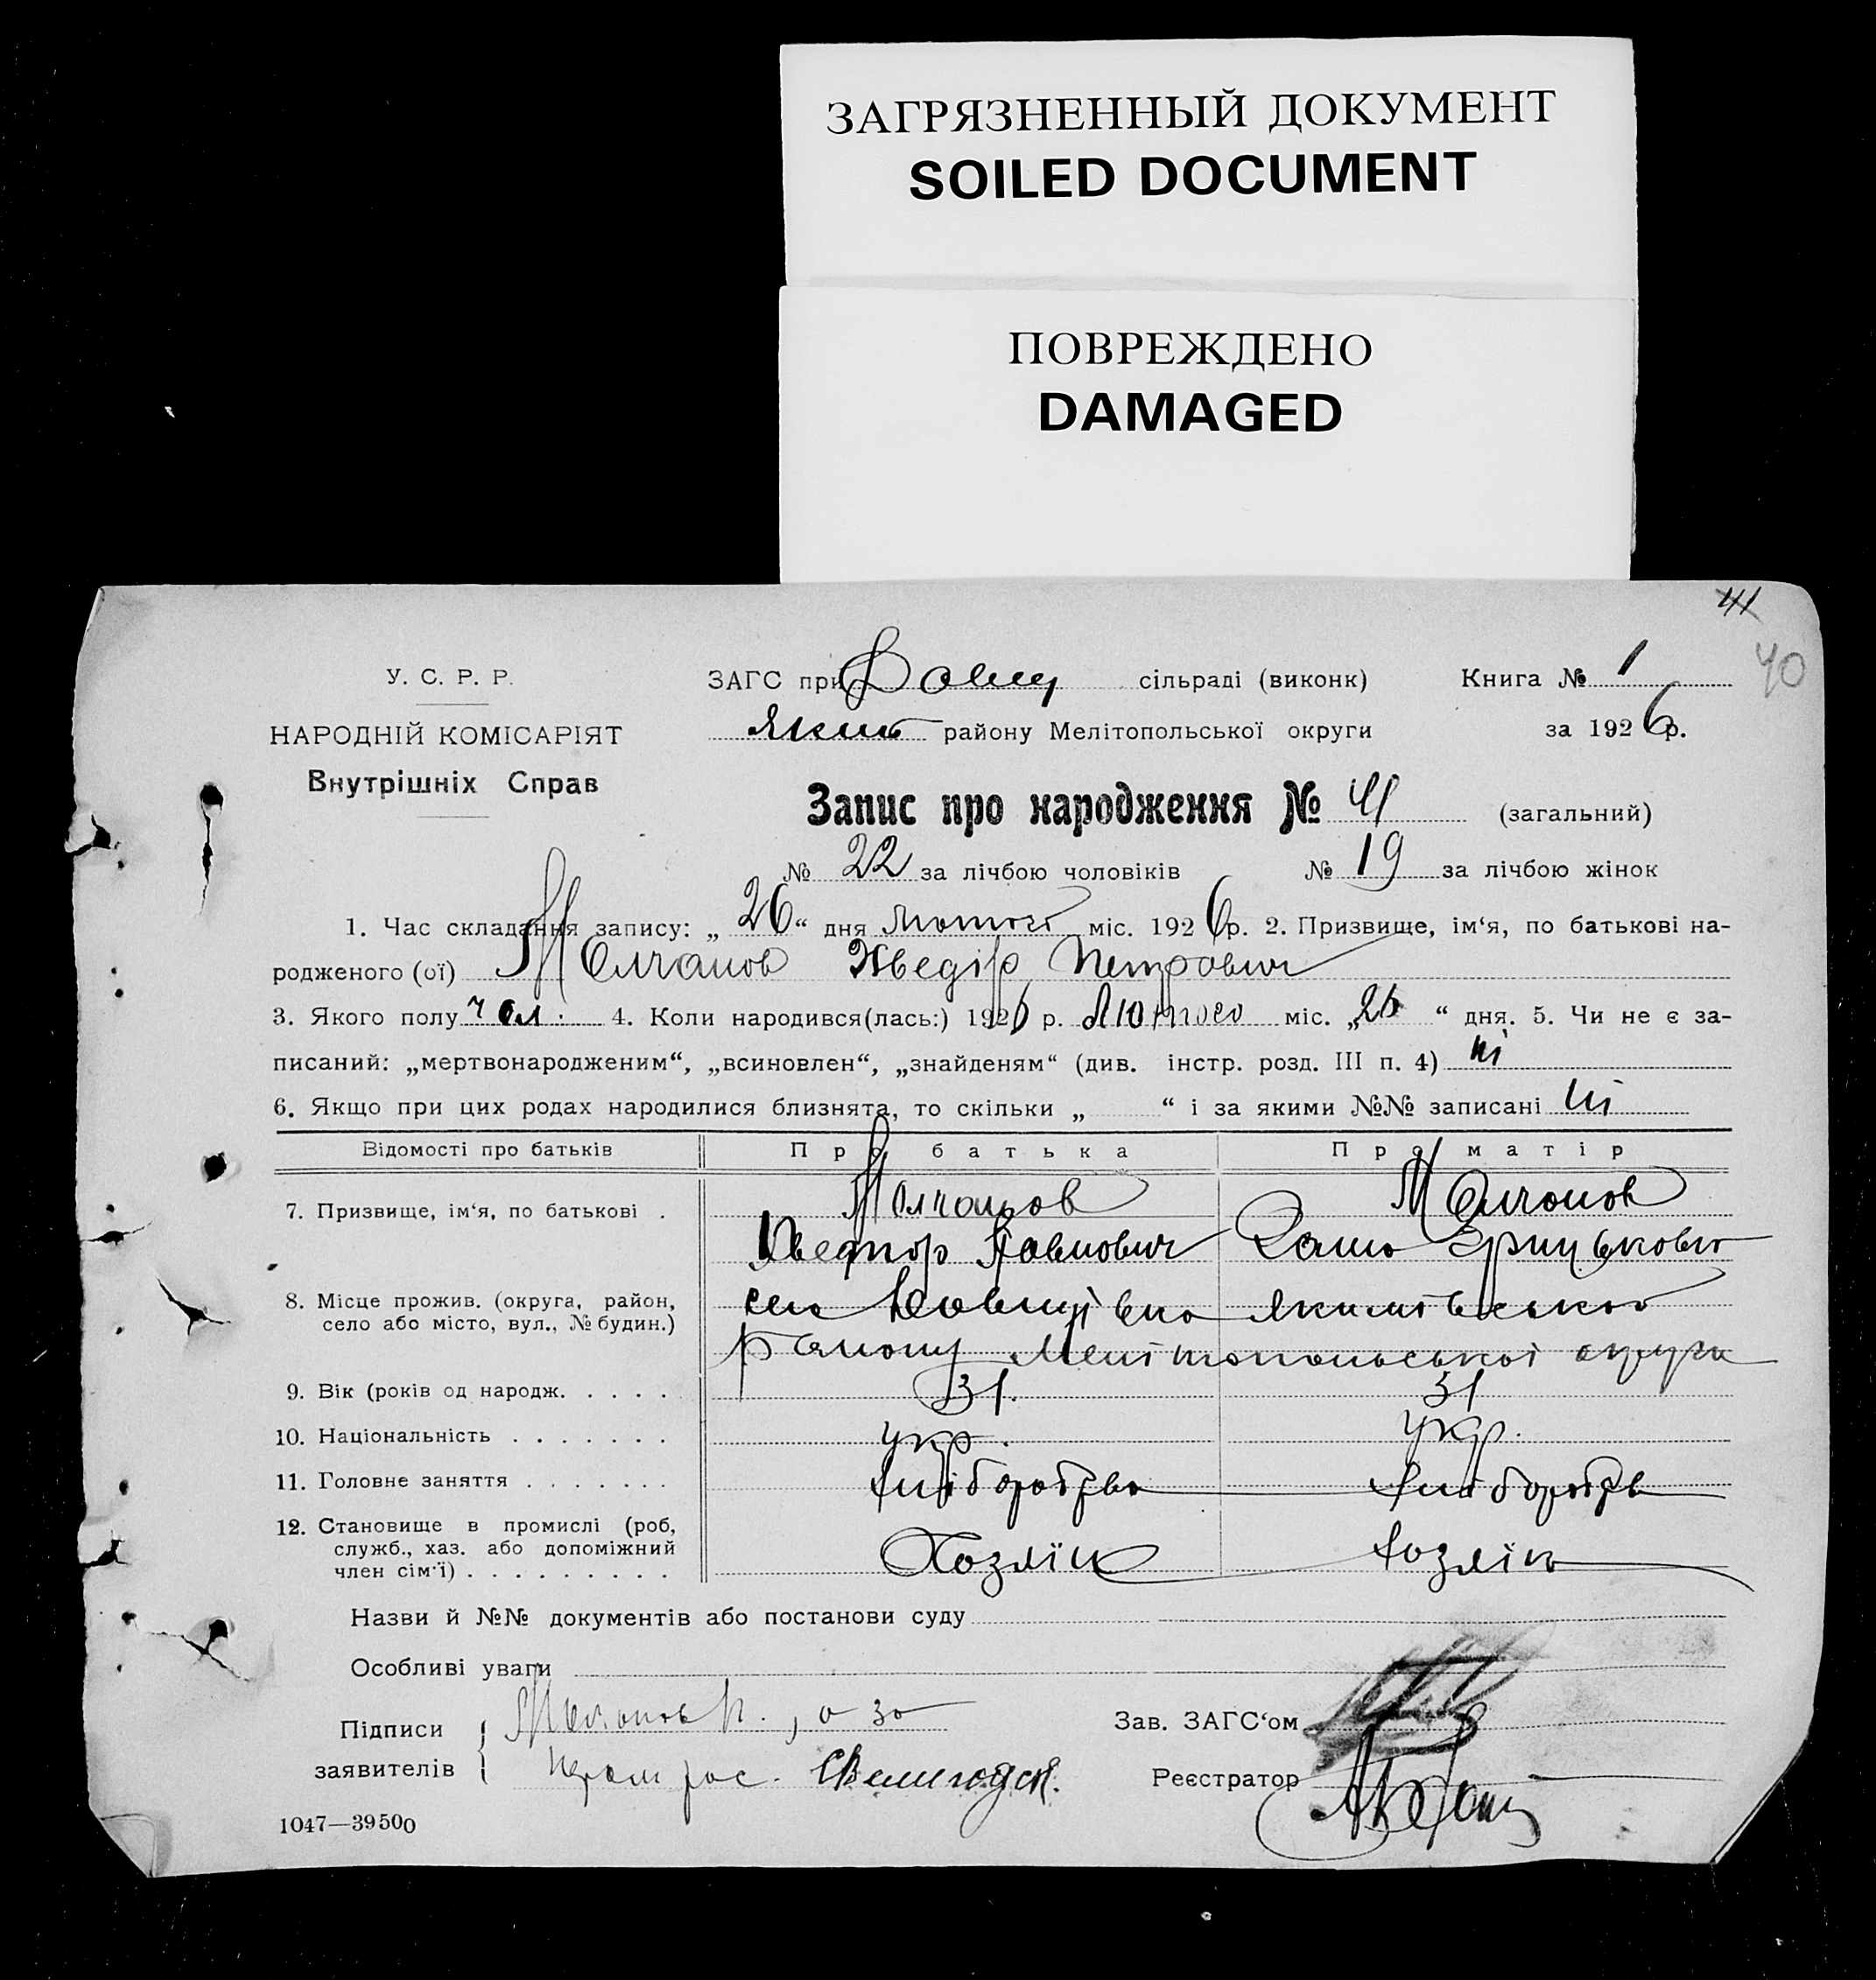 ЗАГРЯЗНЕННЫЙ ДОКУМЕНТ
SOILED DOCUMENT
ПОВРЕЖДЕНО
DAMAGED
41
40
У. С. Р. Р.
НАРОДНІЙ КОМІСАРІЯТ
Внутрішніх Справ
ЗАГС при сільраді (виконк) Книга № 1
Яким району Мелітопольської округи за 1926 р.
Запис про народження № 41 (загальний)
№ 22 за лічбою чоловіків № 19 за лічбою жінок
1. Час складання запису: „ 26 “ дня лютого міс. 1926 р. 2. Призвище, ім‘я, по батькові на-
родженого (ої) Молчанов Хведір Петрович
3. Якого полу чол. 4. Коли народився(лась:) 1926 р. Лютого міс. „ “ дня. 5. Чи не є за-
писаний: „мертвонародженим“, „всиновлен“, „знайденям“ (див. інстр. розд. III п. 4) ні
6. Якщо при цих родах народилися близнята, то скільки „ “ і за якими №№ записані ні
Відомості про батьків Про батька Про матір
7. Призвище, ім‘я, по батькові . Молчанов Молчанов
Павлович
8. Місце прожив. (округа, район,
село або місто, вул., № будин.) село Якимівського
району Мелітопольської округи
9. Вік (років од народж. . . . . 31. 31
10. Національність . . . . . . . укр. укр.
11. Головне заняття . . . . . . . хліборобство хлібороб
12. Становище в промислі (роб,
служб., хаз. або допоміжний
член сім‘ї) . . . . . . . . . Хозяїн хозяїн
Назви й №№ документів або постанови суду
Особливі уваги
Підписи
заявителів
Молчанов П., а за
Зав. ЗАГС‘ом
Реєстратор
1047—39500